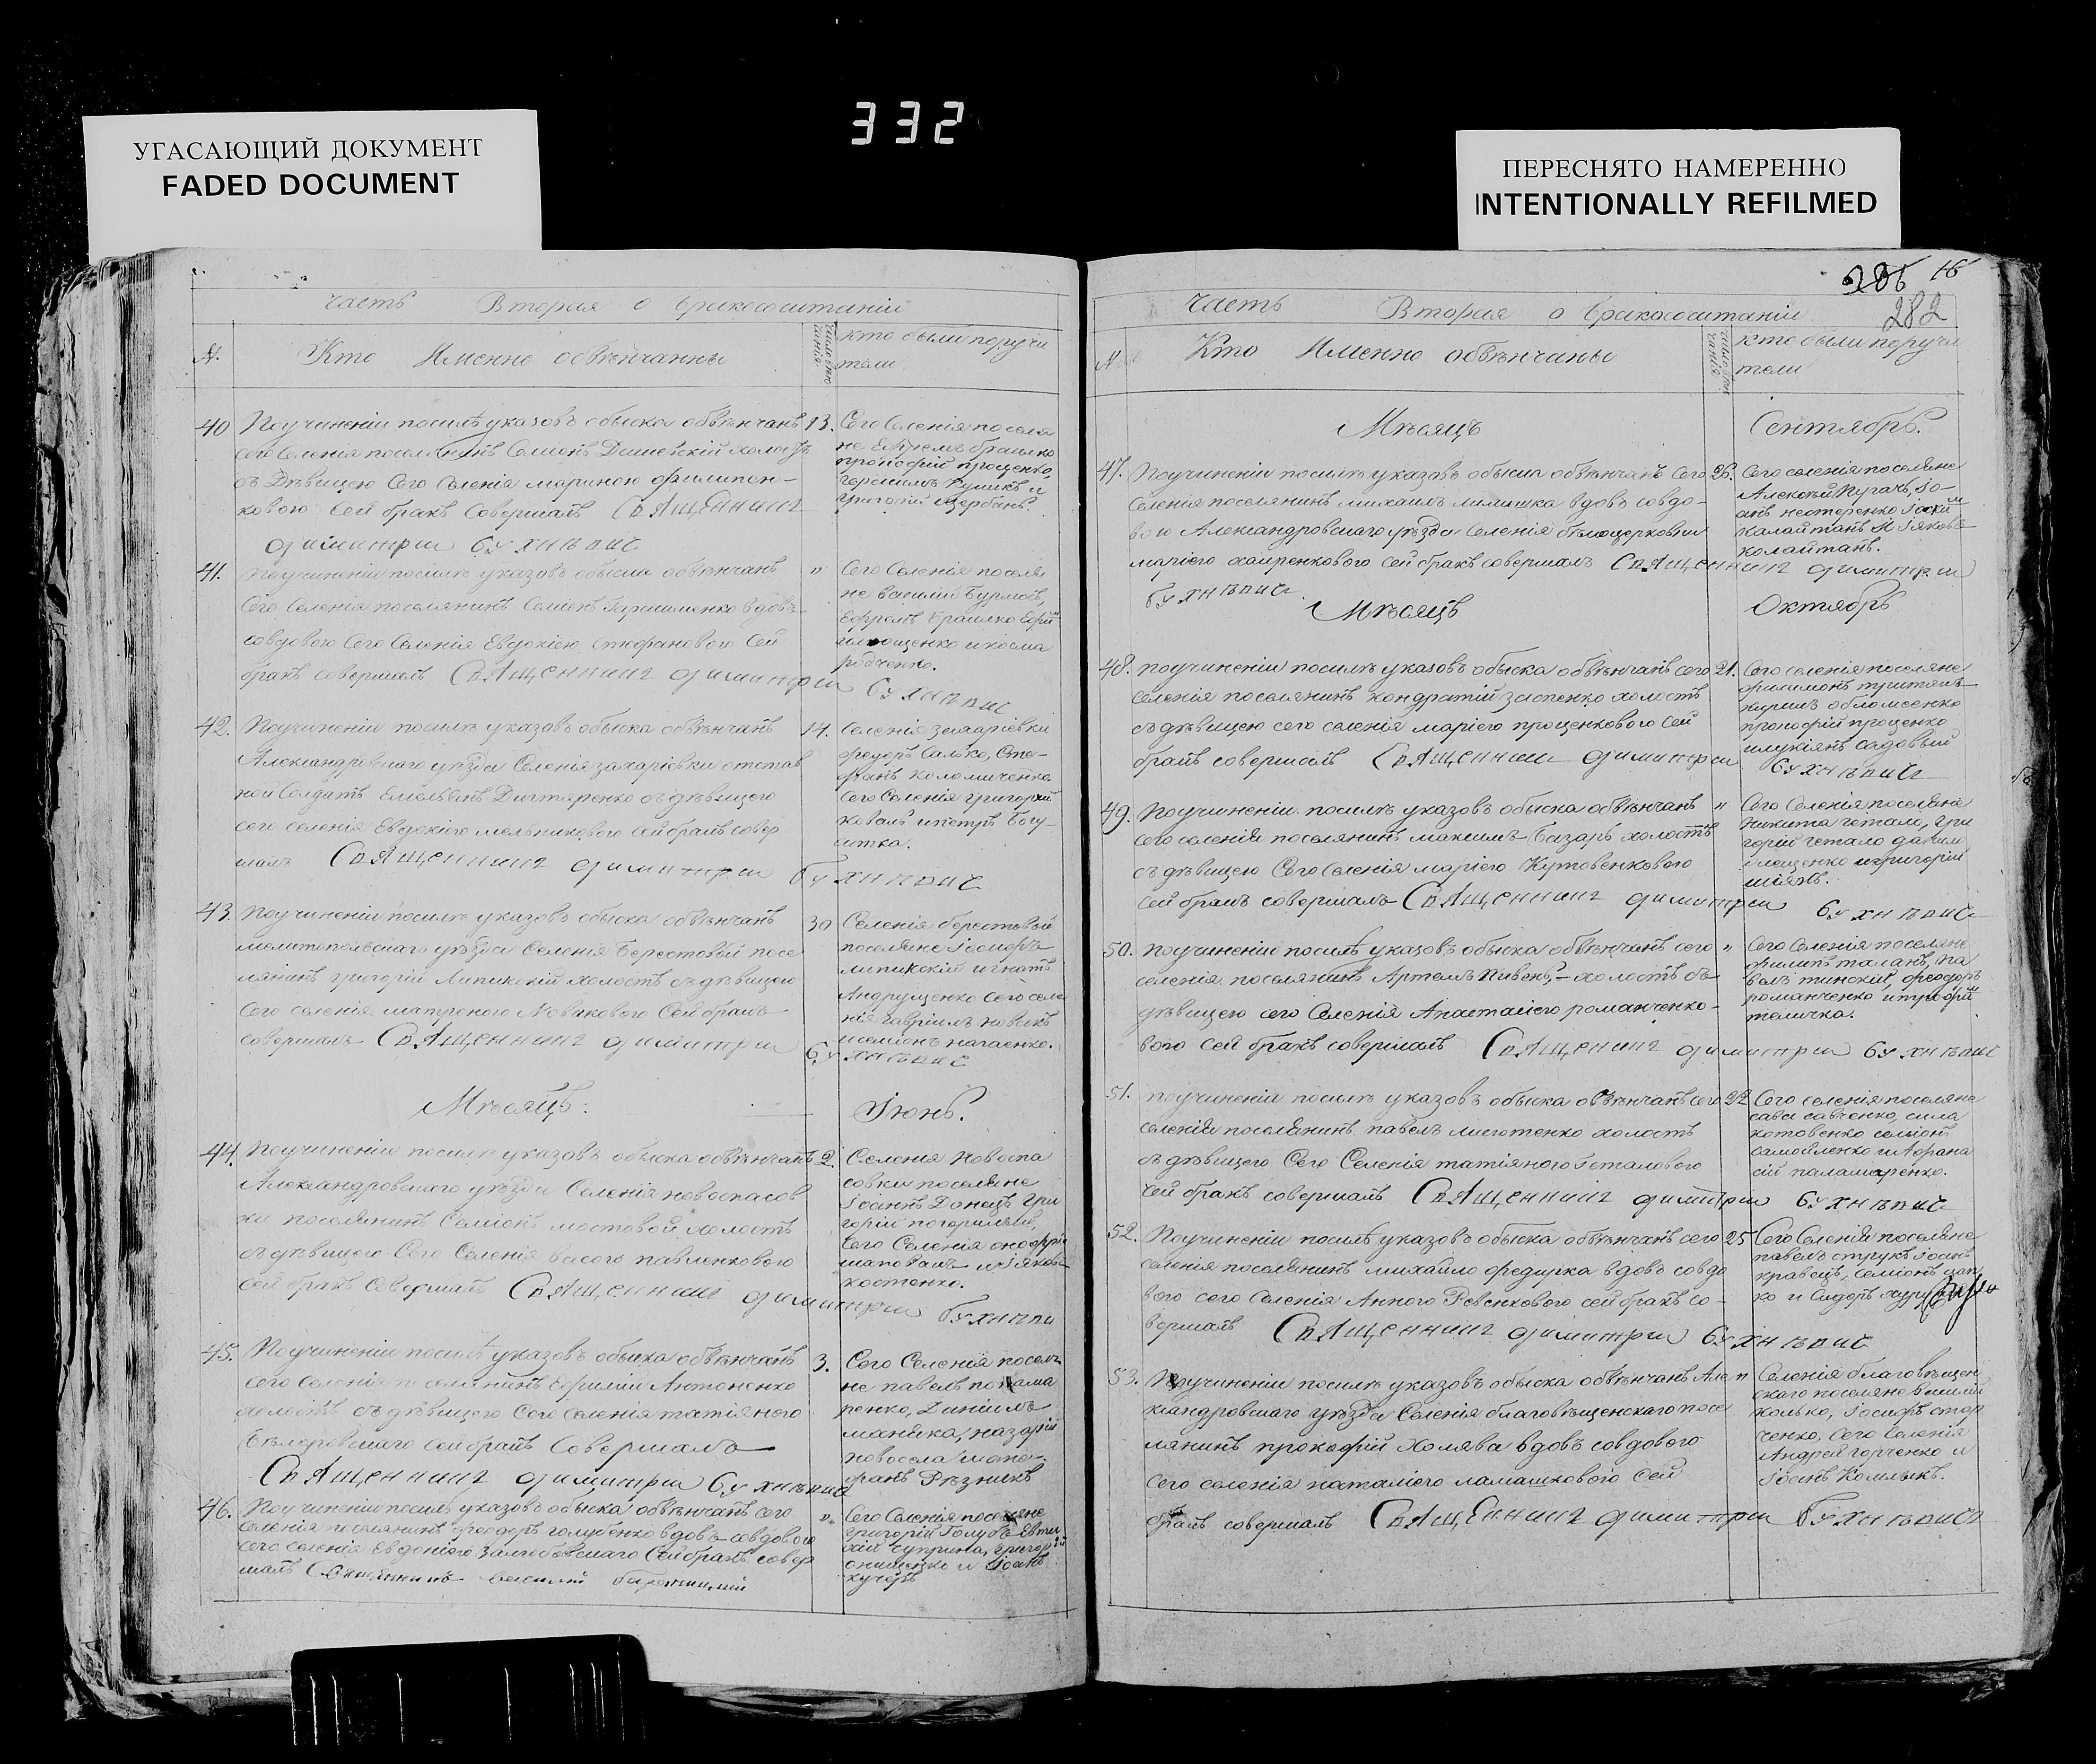 332
УГАСАЮЩИЙ ДОКУМЕНТ
FADED DOCUMENT
ПЕРЕСНЯТО НАМЕРЕННО
INTENTIONALLY REFILMED
часть Вторая о бракосоитаніи
№. Кто Именно обвѣнчанны
кто были поручи
тели
40 Поучиненіи посилѣ указовъ обыска обвѣнчанъ 13.
сего селенія поселянинъ Семіонъ Дашевскій холостъ
съ Дѣвицею Сего Селенія мариною филипен-
ковою Сей бракъ Совершалъ СвАщЕнникъ
димитри бухнѣвич
Сего Селенія поселя
не Ефремъ браилко
прокофій проценко,
герасимъ Куликъ и
григорій щербань.
41. Поучиненіи посилѣ указовъ обыска обвѣнчанъ "
Сего Селенія поселянинъ Семіонъ Гарашченко вдовъ
совдовою Сего Селенія Евдокіею Стефановою Сей
бракъ совершалъ СвАщенникъ димитри бухнѣвич
Сего Селенія поселя
не василій бурлой,
Ефремъ браилко
и косма
рудченко.
42. Поучиненіи посилѣ указовъ обыска обвѣнчанъ 14.
Александровскаго уѣзда Селенія захаріевки отстав
ной Солдатъ Емельянъ Дигтяренко съ дѣвицею
сего селенія Евдокіею мельниковою Сей бракъ совер
шалъ СвАщенникъ димитри бухнѣвич
Селенія захаріевки
федоръ Салько, Сте-
фанъ Коломиченко
Сего Селенія григорій
Коваль ипетръ Богу-
стка.
43. Поучиненіи посилѣ указовъ обыска обвѣнчанъ 30
мелитопольскаго уѣзда Селенія Берестовой посе
лянинъ григорій Липинскій холостъ съ дѣвицею
Сего селенія матроною Новаковою Сей бракъ
совершалъ СвАщенникъ димитри бухнѣвич
Селенія берестовой
поселяне Іосифъ
липинскій игнатъ
Андрущенко Сего селе
нія гавріилъ новакъ
исеміонъ нагаенко.
Мѣсяцъ: Іюнь.
44. Поучиненіи посилѣ указовъ обыска обвѣнчанъ 2.
Александровскаго уѣзда Селенія новоспасов
ки поселянинъ Семіонъ мостовой холостъ
съ дѣвицею Сего Селенія васою павленковою
сей бракъ Совершалъ СвАщенникъ димитри бухнѣви
Селенія Новоспа
совки поселяне
Іоаннъ Донецъ гри
горій погорилый,
Сего Селенія онофрій
шаповалъ иІяковъ
костенко.
45. Поучиненіи посилѣ указовъ обыска обвѣнчанъ 3.
сего селенія поселянинъ Ефимій Антоненко
холостъ съ дѣвицею Сего Селенія татіяною
сей бракъ Совершалъ
СвАщенникъ димитри бухнѣвич
Сего Селенія поселя
не павелъ понама
ренко, Даніилъ
манойка, назарій
новосела исте-
фанъ Рѣзникъ
46. Поучиненіи посилѣ указовъ обыска обвѣнчанъ сего "
селенія поселянинъ феодоръ голубенко вдовъ совдовою
сего селенія Евдокіею Сей бракъ совер
шалъ Священникъ василій
Сего Селенія поселяне
григорій Голубъ Евти
хій Чуприна, григорій
онищенко и Іоанъ
кучеръ
206 16
282
часть Вторая о бракосоитаніи
№ Кто Именно обвѣнчаны
кто были поручи
тели
Мѣсяцъ Сентябрь.
47. Поучиненіи посилѣ указовъ обыска обвѣнчанъ Сего 26.
Селенія поселянинъ михаилъ лимишка вдовъ совдо-
вою Александровскаго уѣзда селенія бѣлоцерковки
маріею хомренковою сей бракъ совершалъ СвАщенникъ димитри
бухнѣвич
Сего селенія поселяне
Алексѣй Пугачь, Іо-
анъ нестеренко Іоакимъ
калайтанъ И Іяковъ
колайтанъ.
Мѣсяцъ Октябрь
48. поучиненіи посилѣ указовъ обыска обвѣнчанъ сего 21.
Селенія поселянинъ кондратій заспенко холостъ
съдѣвицею сего селенія маріею проценковою Сей
бракъ совершалъ СвАщенникъ димитри бухнѣвич
Сего селенія поселяне
филимонъ притякъ
прокофій проценко
илукіянъ садовый
49. Поучиненіи посилѣ указовъ обыска обвѣнчанъ "
сего селенія поселянинъ максимъ Базаръ холостъ
съдѣвицею Сего Селенія маріею Кутовенковою
сей бракъ совершалъ СвАщенникъ димитри бухнѣвич
Сего Селенія поселяне
никита гетало, гри
горій гетало данил
ілещенко игригорій
шіянъ.
50. поучиненіи посилѣ указовъ обыска обвѣнчанъ сего "
селенія поселянинъ Артемъ Пивень, холостъ съ
дѣвицею сего Селенія Анастасіею романченко-
вою Сей бракъ совершалъ СвАщенникъ димитри бухнѣвич
Сего Селенія поселяне
Филипъ таланъ, па
велъ тинскій, феодоръ
романченко итрофим
теличка.
51. поучиненіи посилѣ указовъ обыска обвѣнчанъ сего 22
селенія поселянинъ павелъ миготенко холостъ
съдѣвицею Сего Селенія татіяною Геталовою
Сей бракъ совершалъ СвАщенникъ димитри бухнѣвич
Сего селенія поселяне
сава савченко, сила
котовенко семіонъ
самойленко иАфана
сій паламаренко.
52. Поучиненіи посилѣ указовъ обыска обвѣнчанъ сего 25
селенія поселянинъ михайло федирка вдовъ совдо
вою сего Селенія Анною Ревенковою сей бракъ со-
вершалъ СвАщенникъ димитри бухнѣвич
Сего Селенія поселяне
павелъ струкъ Іоанъ
кравецъ, семіонъ
ко и Сидоръ
53. Поучиненіи посилѣ указовъ обыска обвѣнчанъ Але "
ксандровскаго уѣзда Селенія благовѣщенскаго посе
лянинъ прокофій Холява вдовъ совдовою
Сего селенія наталіею ламашковою Сей
бракъ совершалъ СвАщЕнникъ димитри бухнѣвич
Селенія благовѣщен
скаго поселяне василій
колько, Іосифъ стор
ченко, Сего Селенія
Андрей горченко и
Іоанъ Комлыкъ.